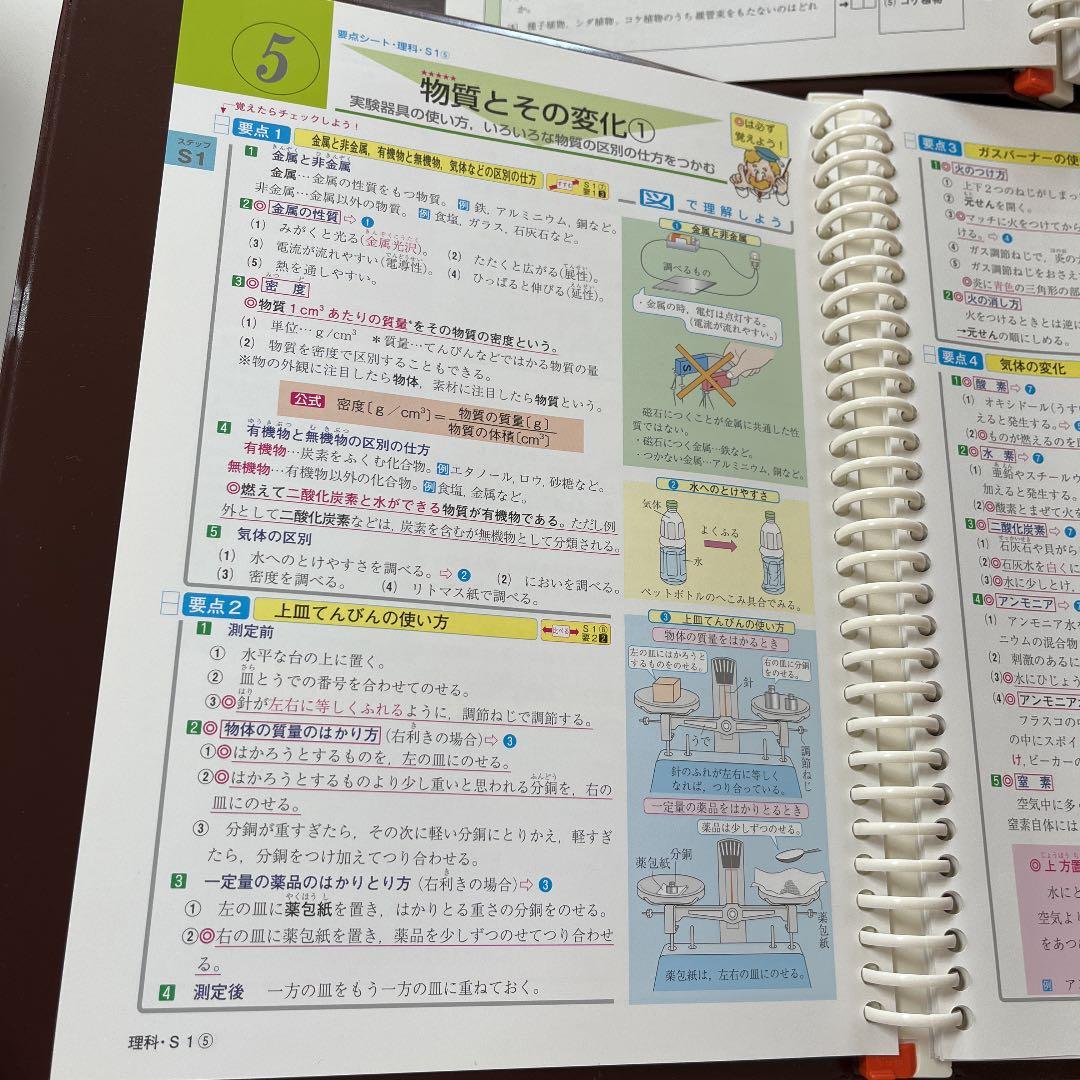 か。
種子植物, シダ植物, コケ植物のうち維管束をもたないのはどれ
(5) コケ植物
5
要点シート・理科・S1⑤
★★★★★
物質とその変化①
実験器具の使い方, いろいろな物質の区別の仕方をつかむ
◎は必ず
覚えよう!
覚えたらチェックしよう!
ステップ
S1
要点1 金属と非金属, 有機物と無機物, 気体などの区別の仕方
1 金属と非金属
金属…金属の性質をもつ物質。 例 鉄, アルミニウム, 銅など。
非金属…金属以外の物質。 例 食塩, ガラス, 石灰石など。
2◎金属の性質⇨❶
(1) みがくと光る(金属光沢)。 (2) たたくと広がる(展性)。
(3) 電流が流れやすい(電導性)。 (4) ひっぱると伸びる(延性)。
(5) 熱を通しやすい。
3◎密度
◎物質1cm³あたりの質量*をその物質の密度という。
(1) 単位…g/cm³ *質量…てんびんなどではかる物質の量
(2) 物質を密度で区別することもできる。
※物の外観に注目したら物体, 素材に注目したら物質という。
公式 密度[g/cm³]=物質の質量[g]
物質の体積[cm³]
4 有機物と無機物の区別の仕方
有機物…炭素をふくむ化合物。例エタノール, ロウ, 砂糖など。
無機物…有機物以外の化合物。例食塩, 金属など。
◎燃えて二酸化炭素と水ができる物質が有機物である。ただし例
外として二酸化炭素などは, 炭素を含むが無機物として分類される。
5 気体の区別
(1) 水へのとけやすさを調べる。⇨❷ (2) においを調べる。
(3) 密度を調べる。 (4) リトマス紙で調べる。
図で理解しよう
❶ 金属と非金属
調べるもの
・金属の時, 電灯は点灯する。
(電流が流れやすい。)
S
磁石につくことが金属に共通した性
質ではない。
・磁石につく金属…鉄など。
・つかない金属…アルミニウム, 銅など。
❷ 水へのとけやすさ
気体
よくふる
水
ペットボトルのへこみ具合でみる。
要点2 上皿てんびんの使い方
くらべる S1⑥
要2 2
1 測定前
① 水平な台の上に置く。
② 皿とうでの番号を合わせてのせる。
③◎針が左右に等しくふれるように, 調節ねじで調節する。
2◎物体の質量のはかり方(右利きの場合)⇨❸
①◎はかろうとするものを, 左の皿にのせる。
②◎はかろうとするものより少し重いと思われる分銅を, 右の
皿にのせる。
③ 分銅が重すぎたら, その次に軽い分銅にとりかえ, 軽すぎ
たら, 分銅をつけ加えてつり合わせる。
3 一定量の薬品のはかりとり方(右利きの場合)⇨❸
① 左の皿に薬包紙を置き, はかりとる重さの分銅をのせる。
②◎右の皿に薬包紙を置き, 薬品を少しずつのせてつり合わせ
る。
4 測定後 一方の皿をもう一方の皿に重ねておく。
❸ 上皿てんびんの使い方
物体の質量をはかるとき
左の皿にはかろうと
するものをのせる。
右の皿に分銅
をのせる。
針
うで
調節ねじ
針のふれが左右に等しく
なれば, つり合っている。
一定量の薬品をはかりとるとき
薬品は少しずつのせる。
薬包紙
分銅
薬包紙
薬包紙は, 左右の皿にのせる。
理科・S1⑤
要点3 ガスバーナーの使
1◎火のつけ方
① 上下2つのねじがしまっ
② 元せんを開く。
③◎マッチに火をつけてから
ける。⇨❹
④ ガス調節ねじで, 炎の
⑤ ガス調節ねじをおさえ
◎炎に青色の三角形の部
2◎火の消し方
火をつけるときとは逆に
→元せんの順にしめる。
要点4 気体の変化
1◎酸素⇨❼
(1) オキシドール(うす
えると発生する。
(2)◎ものが燃えるのを
2◎水素⇨❼
(1) 亜鉛やスチールウ
加えると発生する。
(2)◎酸素とまぜて火を
3◎二酸化炭素⇨❼
(1) 石灰石や貝がら
(2)◎石灰水を白くに
(3)◎水に少しとけ,
4◎アンモニア⇨❼
(1) アンモニア水を
ニウムの混合物
(2) 刺激のあるに
(3)◎水にひじょう
(4)◎アンモニア
フラスコの中
の中にスポイ
け, ビーカーの
5◎窒素
空気中に多
窒素自体には
◎上方置
水にと
空気より
をあつ
例 アン